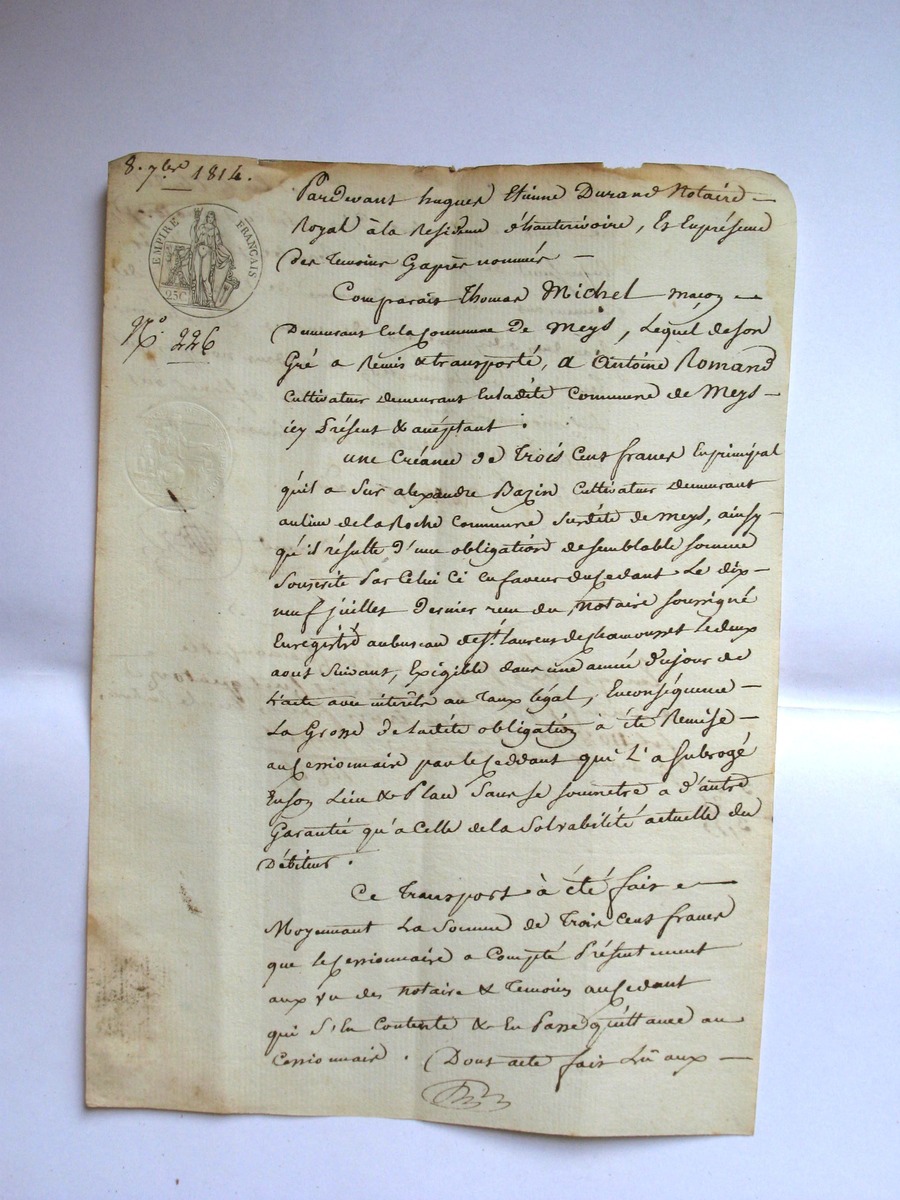 8. 7bre 1814.
EMPIRE FRANÇAIS
25C
No. 226
Pardevant hugues Etienne Durand Notaire
Royal à la Residence d'hauterivoire, Et Enprésence
des temoins Cyaprès nommés
Comparait Thomas Michel maçon
Demeurant Enla Commune de Meys, Lequel deson
Gré a Remis & transporté, a Antoine Romand
Cultivateur demeurant Enladite Commune de Meys
icy Présent & acceptant.
une Créance de trois Cent francs En principal
qu'il a Sur alexandre Bazin Cultivateur Demeurant
aulieu de la Roche Commune Susdite de Meys, ainsy
qu'il résulte d'une obligation de semblable somme
Souscrite Par Celui Ci en faveur ducedant Le dix
neuf juillet dernier recu du notaire soussigné
Enregistré aubureau de St. laurent de chamousset le deux
aout Suivant, Exigible dans une année dujour de
l'acte avec intérêts au taux légal, Enconséquence
La Grosse de ladite obligation à été Remise
au Cessionnaire par le Ceddant qui L'a Subrogé
Enson Lieu & Place Sans se soumetre a d'autre
Garantie qu'a Celle de la Solvabilité actuelle du
Débiteur.
Ce transport à été fait
Moyennant La Somme de trois Cent francs
que le Cessionnaire a Compté Présentement
aux vu des notaire & temoins au Cedant
qui S'en Contente & En Passe quittance au
Cessionnaire. Dont acte fait Lu aux